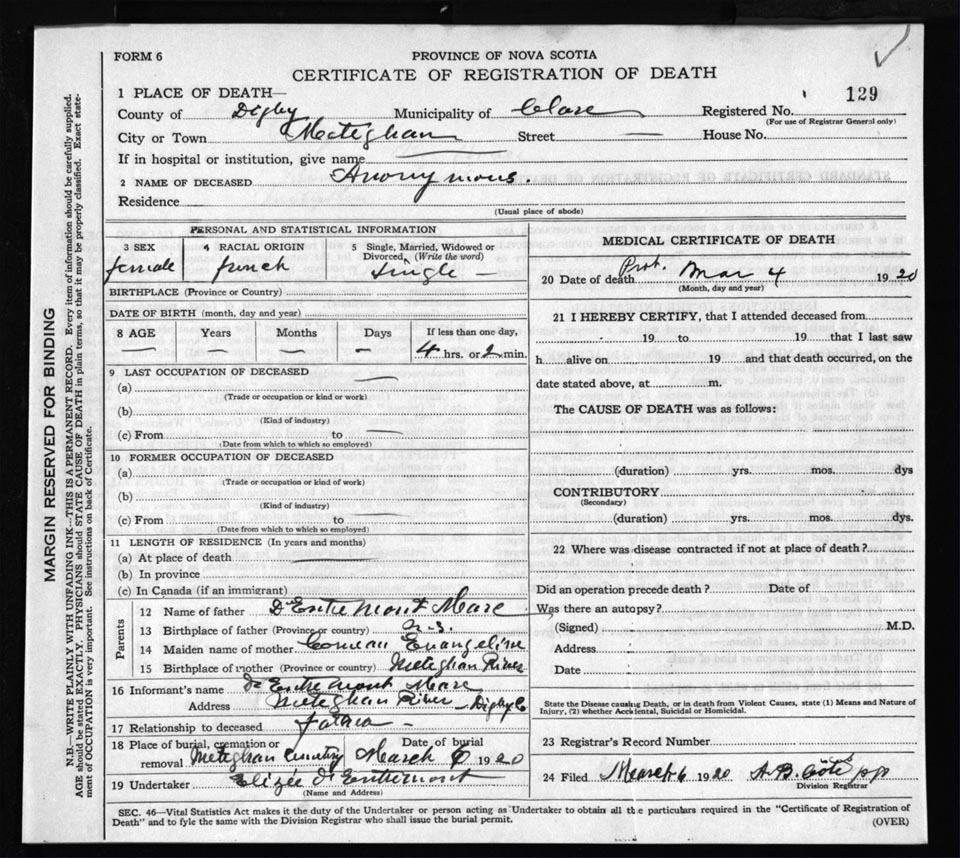 FORM 6
PROVINCE OF NOVA SCOTIA
CERTIFICATE OF REGISTRATION OF DEATH
1 PLACE OF DEATH—
County of Digby Municipality of Clare Registered No. 129
(For use of Registrar General only)
City or Town Meteghan Street — House No.
If in hospital or institution, give name —
2 NAME OF DECEASED Anonymous.
Residence
(Usual place of abode)
PERSONAL AND STATISTICAL INFORMATION
3 SEX 4 RACIAL ORIGIN 5 Single, Married, Widowed or Divorced, (Write the word)
female french single —
BIRTHPLACE (Province or Country)
DATE OF BIRTH (month, day and year)
8 AGE Years Months Days If less than one day,
— — — — 4 hrs. or 2 min.
9 LAST OCCUPATION OF DECEASED —
(a)
(Trade or occupation or kind or work)
(b)
(Kind of industry)
(c) From to —
(Date from which to which so employed)
10 FORMER OCCUPATION OF DECEASED
(a)
(Trade or occupation or kind of work)
(b)
(Kind of industry)
(c) From to —
(Date from which to which so employed)
11 LENGTH OF RESIDENCE (In years and months)
(a) At place of death —
(b) In province
(c) In Canada (if an immigrant)
Parents
12 Name of father D'Entremont Marc
13 Birthplace of father (Province or country) N.S.
14 Maiden name of mother Comeau Evangeline
15 Birthplace of mother (Province or country) Meteghan River
16 Informant's name D'Entremont Marc
Address Meteghan River — Digby Co
17 Relationship to deceased father —
18 Place of burial, cremation or removal Meteghan Cemetery Date of burial March 6 1920
19 Undertaker Elizée d'Entremont
(Name and Address)
MEDICAL CERTIFICATE OF DEATH
20 Date of death Mar 4 1920
(Month, day and year)
21 I HEREBY CERTIFY, that I attended deceased from
19 to 19 that I last saw
h alive on 19 and that death occurred, on the
date stated above, at m.
The CAUSE OF DEATH was as follows:
(duration) yrs. mos. dys
CONTRIBUTORY
(Secondary)
(duration) yrs. mos. dys.
22 Where was disease contracted if not at place of death?
Did an operation precede death? Date of
Was there an autopsy?
(Signed) M.D.
Address
Date
State the Disease causing Death, or in death from Violent Causes, state (1) Means and Nature of
Injury, (2) whether Accidental, Suicidal or Homicidal.
23 Registrar's Record Number
24 Filed March 6 1920 A. B. Côté ppp
Division Registrar
SEC. 46—Vital Statistics Act makes it the duty of the Undertaker or person acting as Undertaker to obtain all the particulars required in the "Certificate of Registration of
Death" and to fyle the same with the Division Registrar who shall issue the burial permit. (OVER)
MARGIN RESERVED FOR BINDING
N.B.—WRITE PLAINLY WITH UNFADING INK—THIS IS A PERMANENT RECORD. Every item of information should be carefully supplied.
AGE should be stated EXACTLY. PHYSICIANS should STATE CAUSE OF DEATH in plain terms, so that it may be properly classified. Exact state-
ment of OCCUPATION is very important. See instructions on back of Certificate.